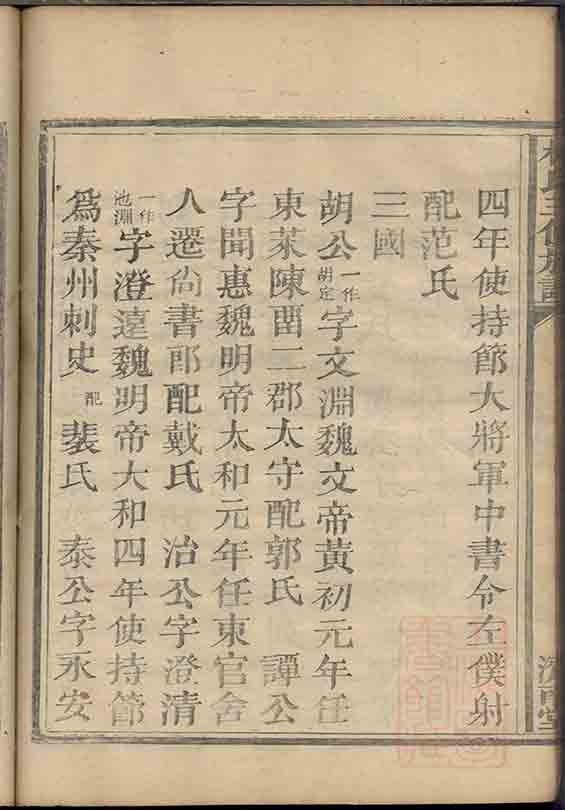 四年使持節大將軍中書令左僕射
配范氏
三國
胡公一作胡定字文淵魏文帝黃初元年任
東萊陳畱二郡太守配郭氏 譚公
字聞惠魏明帝太和元年任東官舍
人遷尙書郎配戴氏 治公字澄清
一作池淵字澄遠魏明帝大和四年使持節
爲秦州刺史 配裴氏 泰公字永安